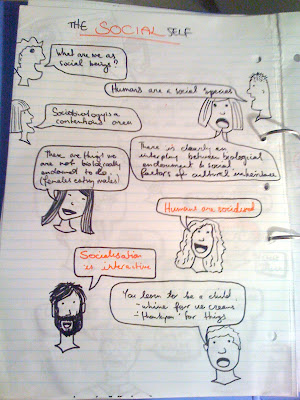 THE SOCIAL SELF
What are we as
social beings?
Humans are a social species
Sociobiology is a
contentious area
There is clearly an
interplay between biological
endowment & social
factors of cultural
There are things we
are not biologically
endowed to do.
(females eating males)
Humans are socialised
Socialisation
is interactive
You learn to be a child.
- whine for ice creams
- 'thankyou' for things